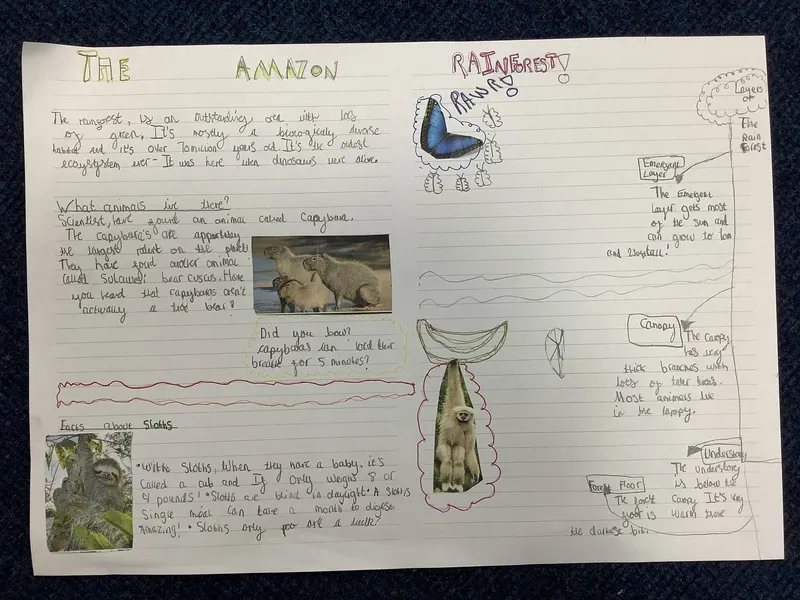 THE AMAZON RAINFOREST!
RAWR!
The rainforest, is an outstanding area with lots
of green. It's mostly a biologically diverse
habitat and it's over 70 million years old. It's the oldest
ecosystem ever - It was here when dinosaurs were alive.
What animals live there?
Scientist, have found an animal called Capybara.
The capybara's are apparently
the largest rodent on the planet!
They have found another animal
called Sulawesi bear cuscus. Have
you heard that capybaras aren't
actually a true bear?
Did you know?
capybaras can hold their
breath for 5 minutes?
Facts about Sloths
•With Sloths, When they have a baby, it's
called a cub and It Only weighs 8 or
9 pounds! •Sloths are blind in daylight •A Sloths
Single meal can take a month to digest.
Amazing! •Sloths only poo once a week
Layers of
The
Rain
Forest
Emergent
Layer
The Emergent
Layer gets most
of the sun and
can grow to
and
Canopy
The Canopy
has very
thick branches with
lots of
Most animals live
in the canopy.
Understory
The understory
is below the
canopy It's very
warm there
Forest Floor
The forest
floor is
the darkest bit.